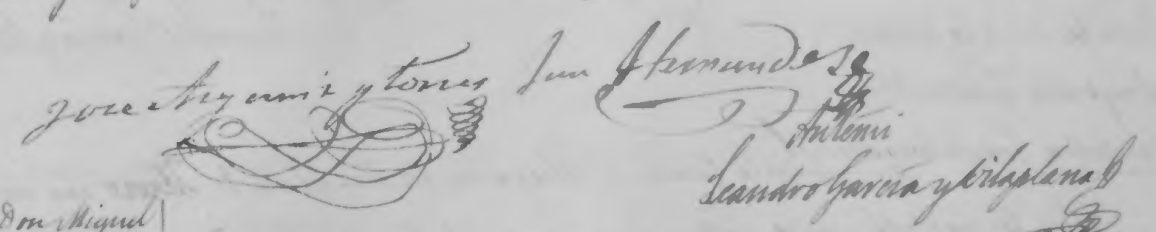 Jose Azemis y torres Juan Hernandese
Antemi
Leandro García y Vilaplana
Don Miguel